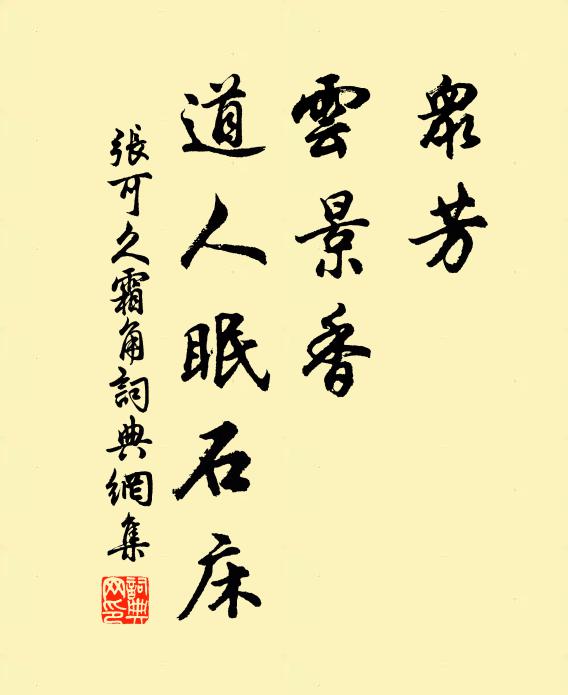 眾芳
雲景香
道人眠石床
張可久霜角詞典網集
詞典網印